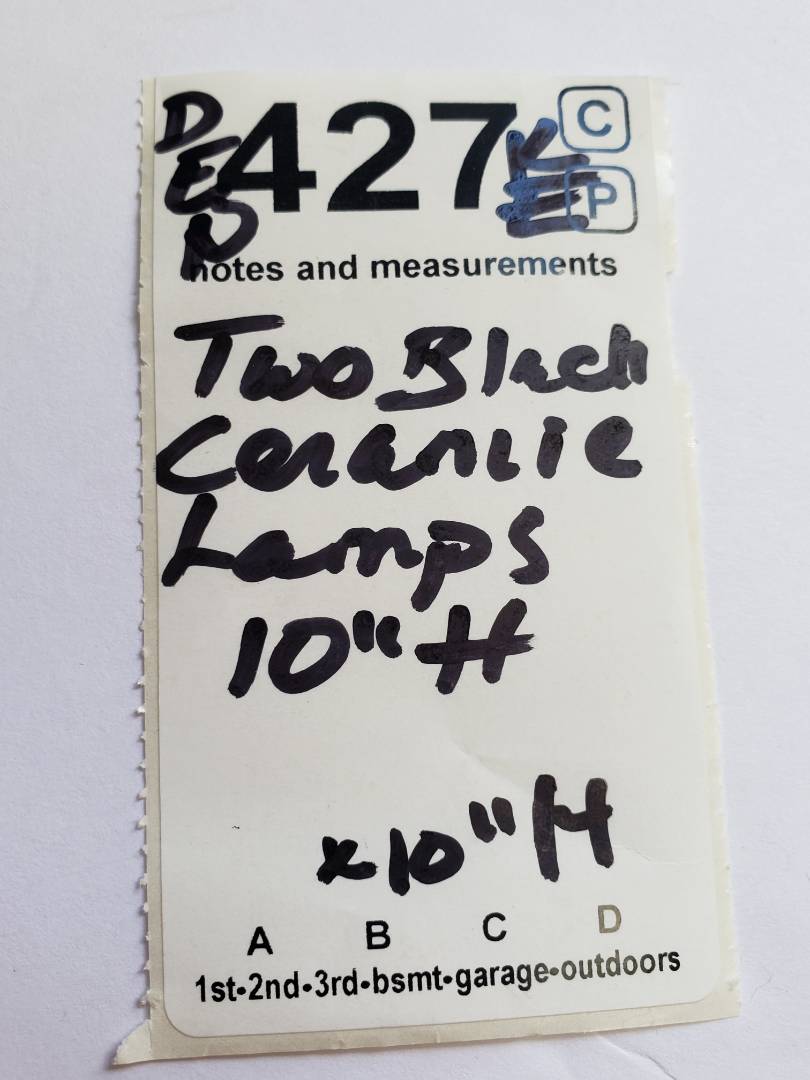 DEN 427 C
P
notes and measurements
Two Black
Ceramic
Lamps
10" H
x10" H
A B C D
1st•2nd•3rd•bsmt•garage•outdoors